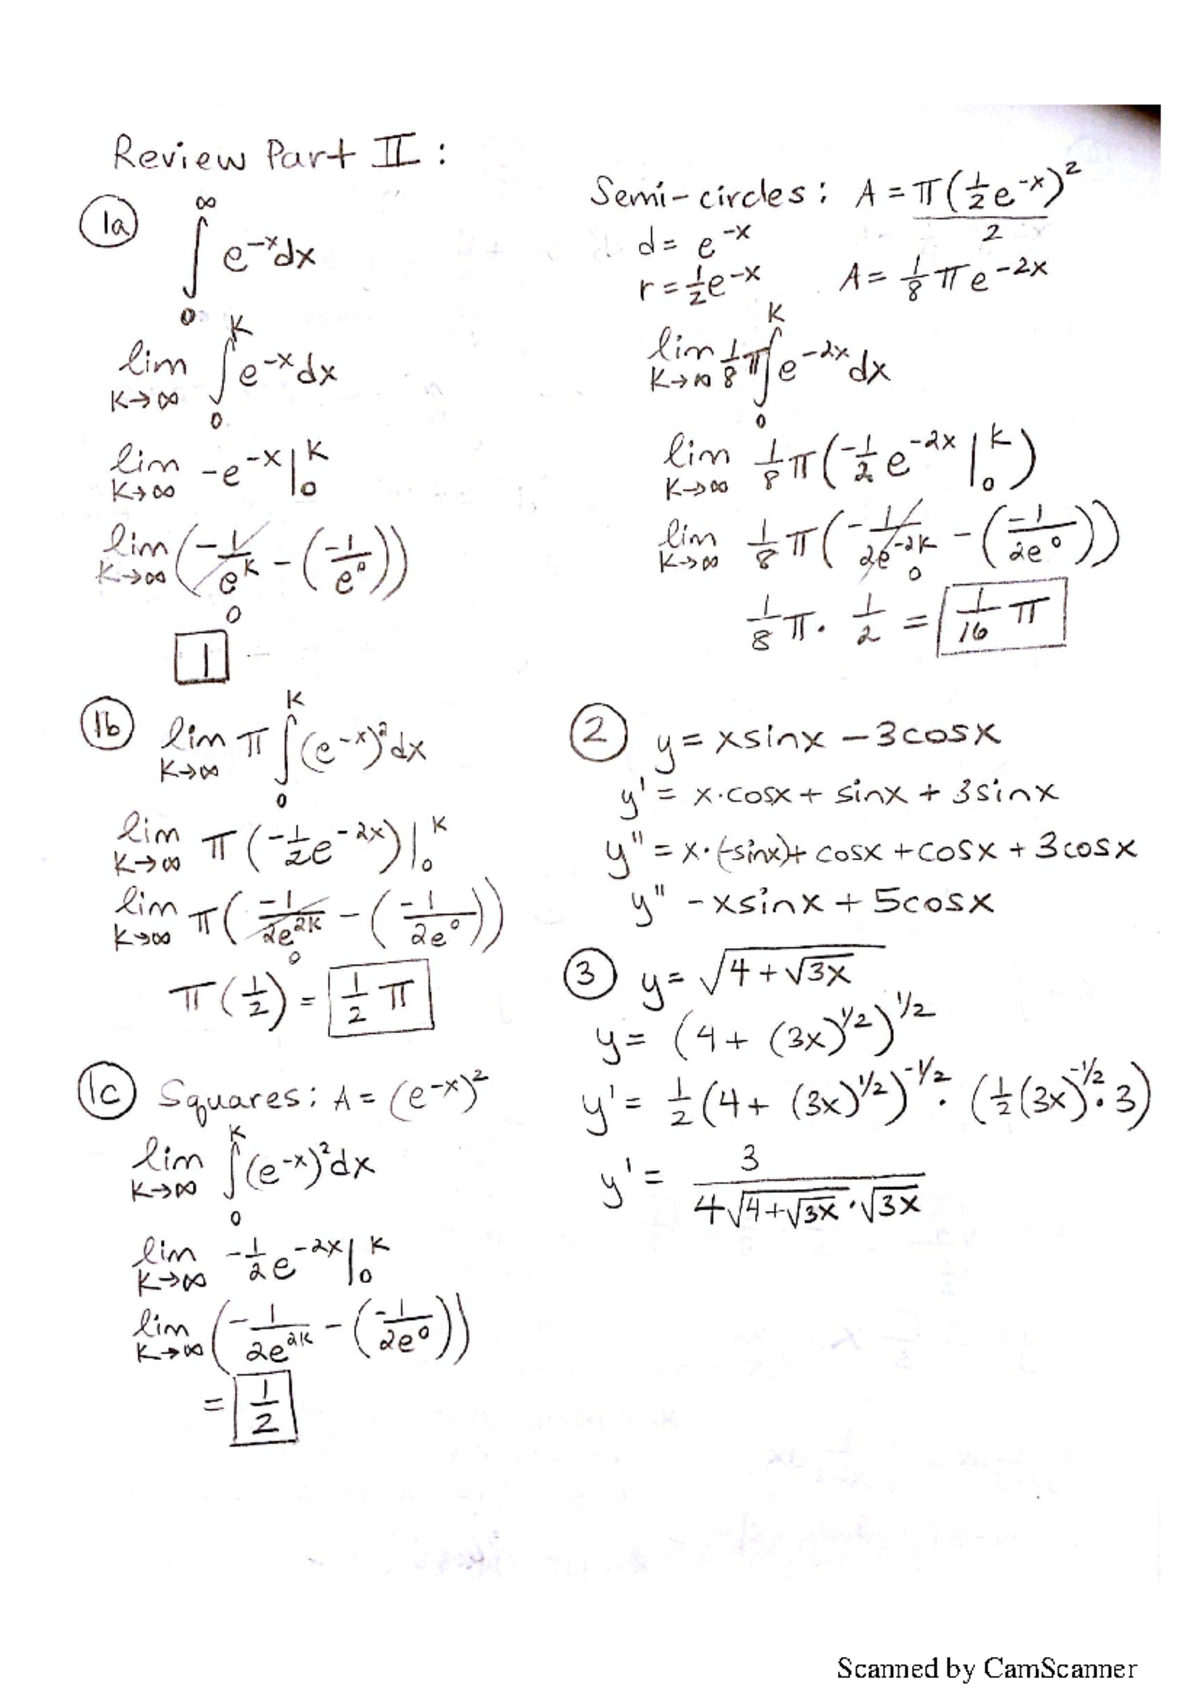 Review Part II:
1a ∫₀^∞ e^-x dx
lim K→∞ ∫₀^K e^-x dx
lim K→∞ -e^-x |₀^K
lim K→∞ (-1/e^K - (-1/e^0))
0
1
1b lim K→∞ π ∫₀^K (e^-x)² dx
lim K→∞ π(-1/2 e^-2x) |₀^K
lim K→∞ π(-1/2e^2K - (-1/2e^0))
0
π(1/2) = 1/2 π
1c Squares: A = (e^-x)²
lim K→∞ ∫₀^K (e^-x)² dx
lim K→∞ -1/2 e^-2x |₀^K
lim K→∞ (-1/2e^2K - (-1/2e^0))
= 1/2
Semi-circles: A = π(1/2 e^-x)²/2
d = e^-x
r = 1/2 e^-x A = 1/8 π e^-2x
lim K→∞ 1/8 π ∫₀^K e^-2x dx
lim K→∞ 1/8 π(-1/2 e^-2x |₀^K)
lim K→∞ 1/8 π(-1/2e^-2K - (-1/2e^0))
0
1/8 π · 1/2 = 1/16 π
2 y = xsinx - 3cosx
y' = x·cosx + sinx + 3sinx
y" = x·(-sinx)+ cosx + cosx + 3cosx
y" - xsinx + 5cosx
3 y = √(4 + √3x)
y = (4 + (3x)^1/2)^1/2
y' = 1/2 (4 + (3x)^1/2)^-1/2 · (1/2 (3x)^-1/2 · 3)
y' = 3/(4√(4+√3x) · √3x)
Scanned by CamScanner